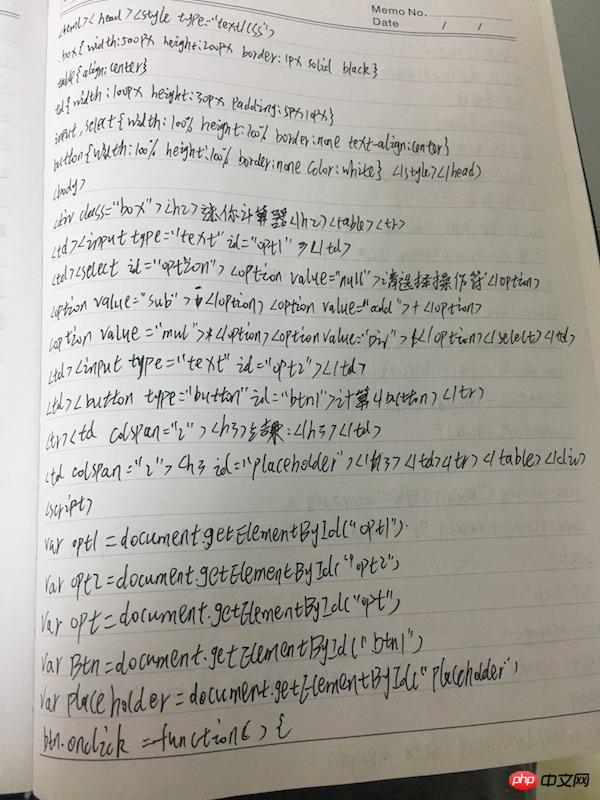 Memo No.
Date / /
<html><head><style type="text/css">
.box{width:500px height:200px border:1px solid black}
table{align:center}
td{width:100px height:30px padding:5px10px}
input,select{width:100% height:100% border:none text-align:center}
button{width:100% height:100% border:none color:white} </style></head>
<body>
<div class="box"><h2>迷你计算器</h2><table><tr>
<td><input type="text" id="opt1"></td>
<td><select id="option"><option value="null">请选择操作符</option>
<option value="sub"></option><option value="add">+</option>
<option value="mul">*</option><option value="Div"></option></select></td>
<td><input type="text" id="opt2"></td>
<td><button type="button" id="btn1">计算</button></tr>
<tr><td colspan="2"><h3>结果:</h3></td>
<td colspan="2"><h3 id="placeholder"></h3></td></tr></table></div>
<script>
var opt1=document.getElementById("opt1").
var opt2=document.getElementById("opt2")
var opt=document.getElementById("opt")
var Btn=document.getElementById("btn1")
var placeholder=document.getElementById("placeholder")
btn.onclick =function() {
php 中文网